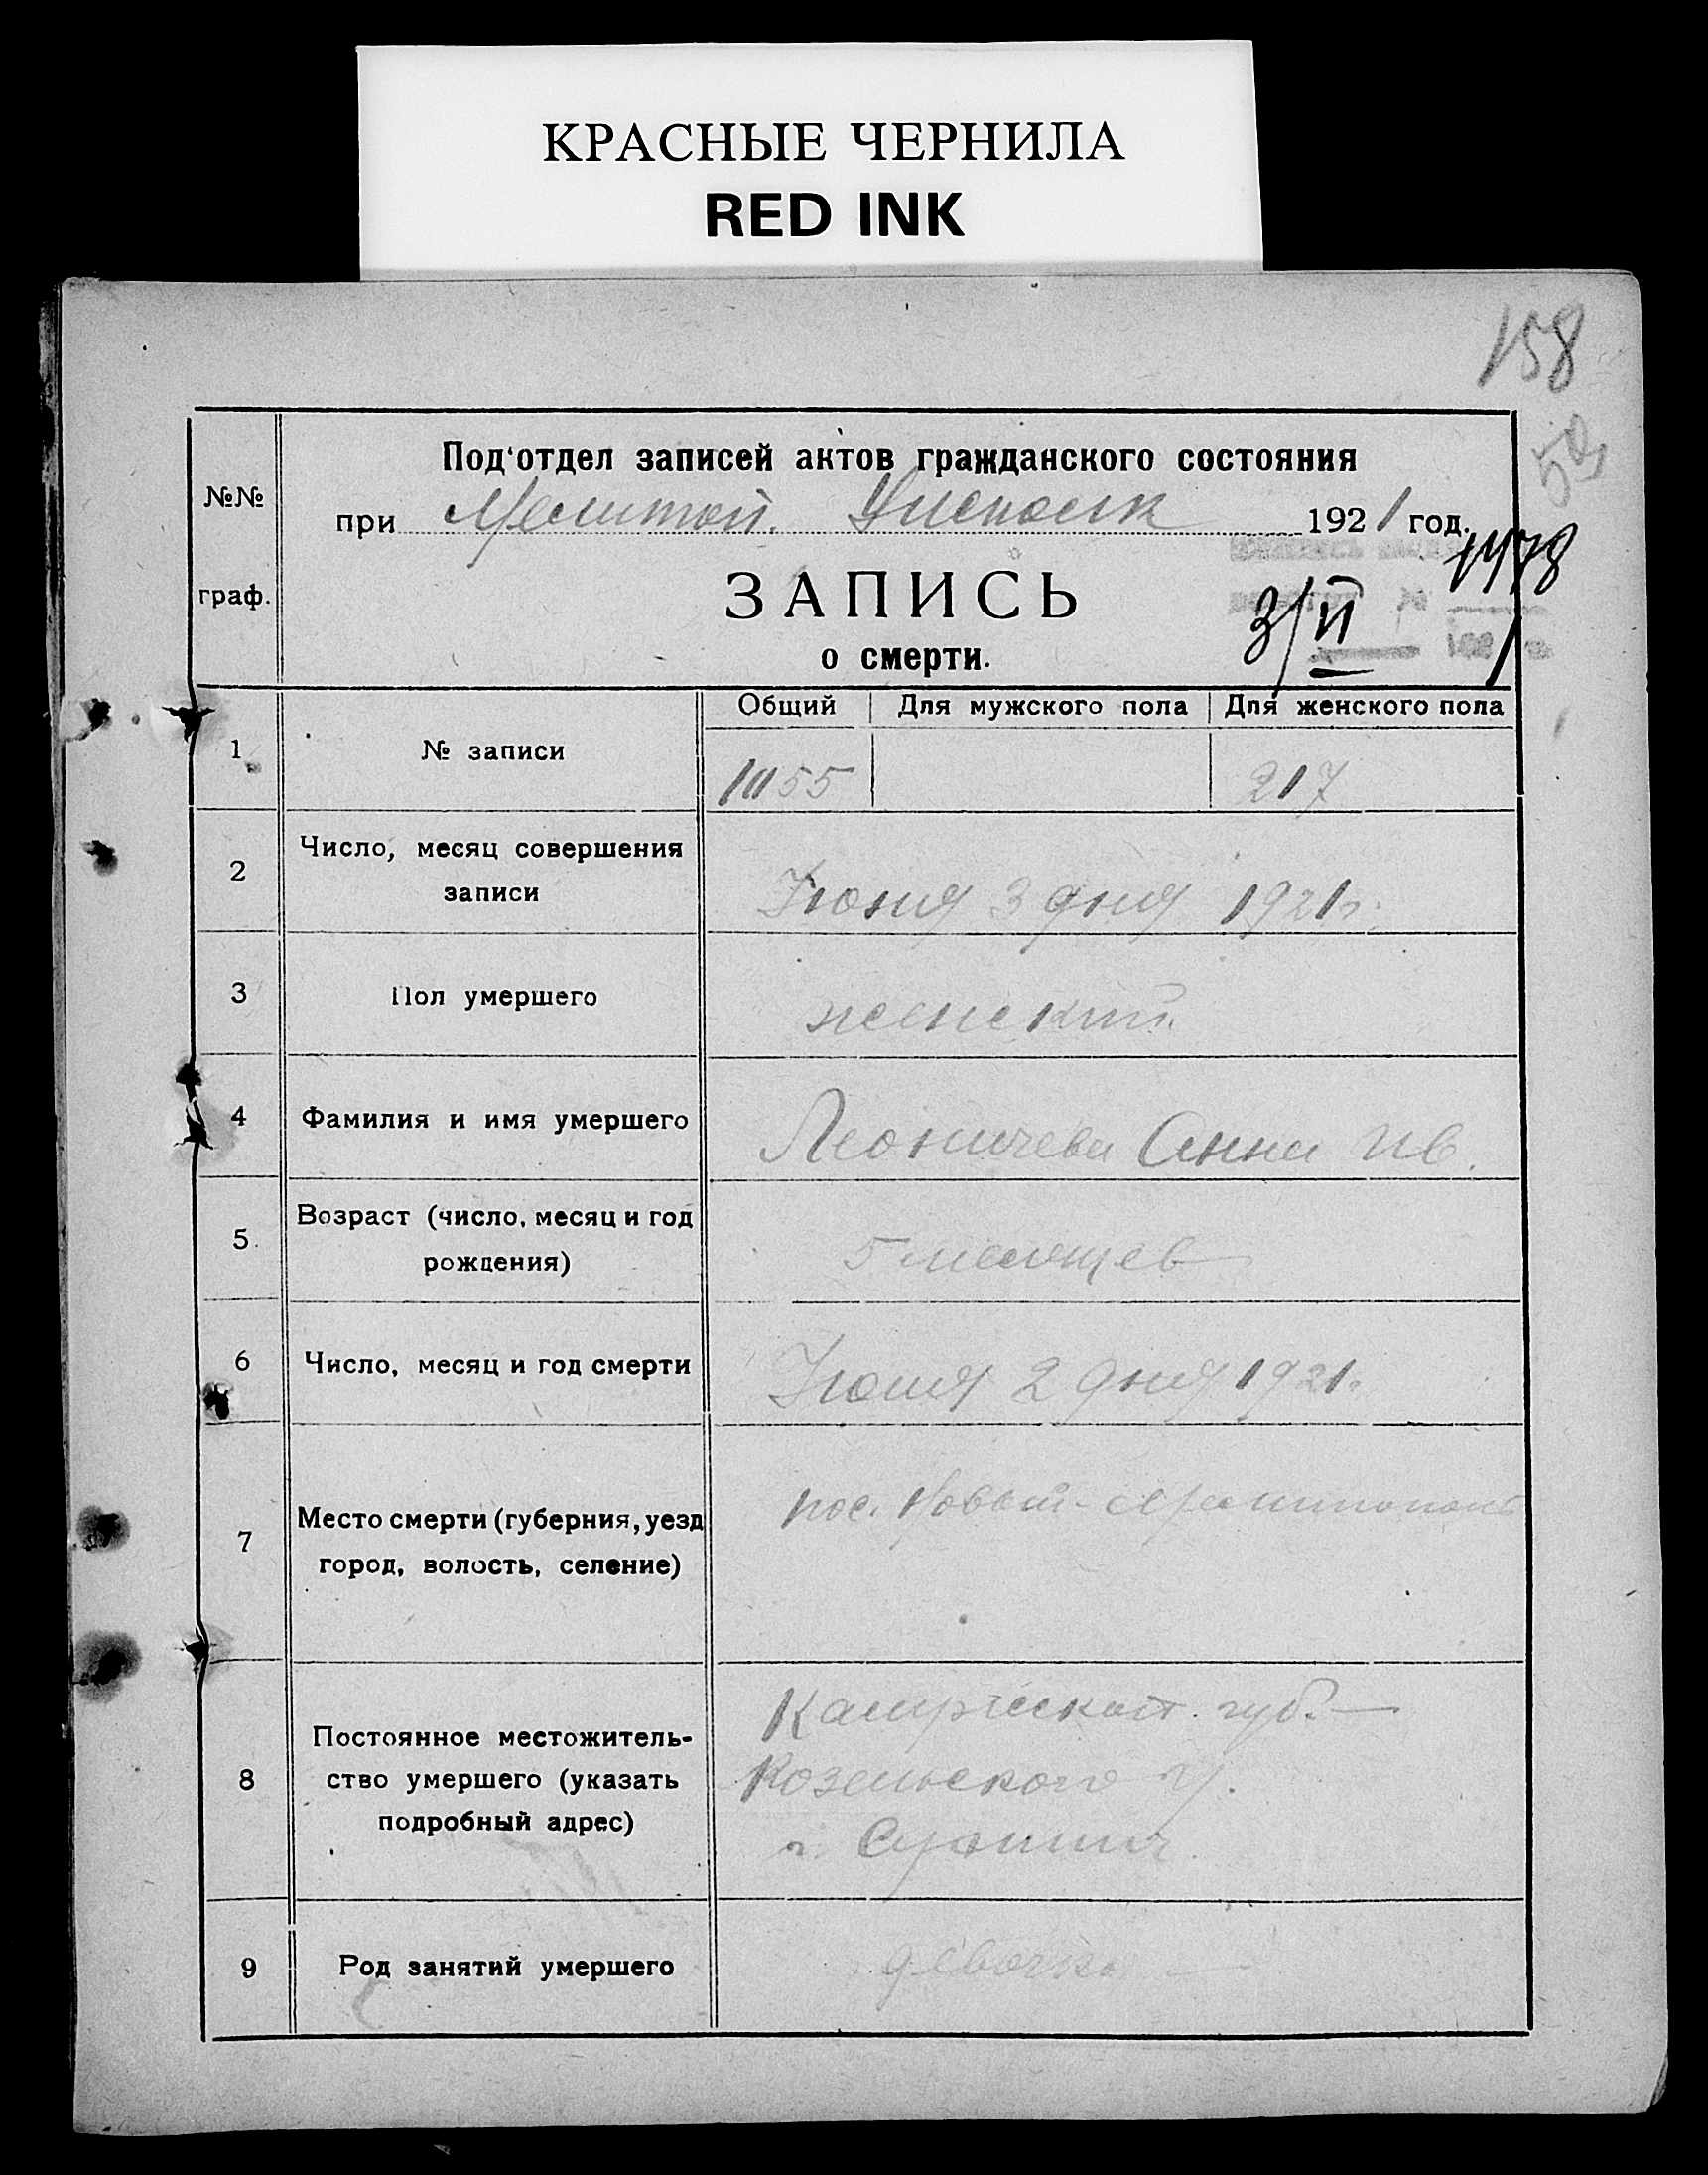 КРАСНЫЕ ЧЕРНИЛА
RED INK
158
Под'отдел записей актов гражданского состояния
№№ граф.
при Мелитоп. Уисполк 1921 год.
1478
ЗАПИСЬ
3/VI
о смерти.
Общий Для мужского пола Для женского пола
1 № записи 1055 217
2 Число, месяц совершения
записи
Июня 3 дня 1921 г.
3 Пол умершего женский
4 Фамилия и имя умершего Леоничева Анна Ив.
5 Возраст (число, месяц и год
рождения)
5 месяцев
6 Число, месяц и год смерти Июня 2 дня 1921.
7 Место смерти (губерния, уезд
город, волость, селение)
пос. Новый-
8 Постоянное местожитель-
ство умершего (указать
подробный адрес)
губ.
Козельского у.
9 Род занятий умершего девочка